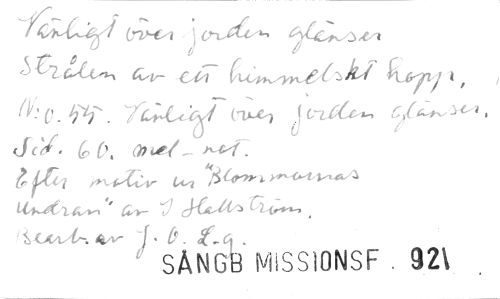 Vänligt över jorden glänser
Strålen av ett himmelskt hopp,
N:o. 55. Vänligt över jorden glänser.
Sid. 60. mel-not.
Efter motiv ur "Blommornas
undran" av I Hallström.
Bearb. av J. O. L-g.
SÅNGB MISSIONSF. 921